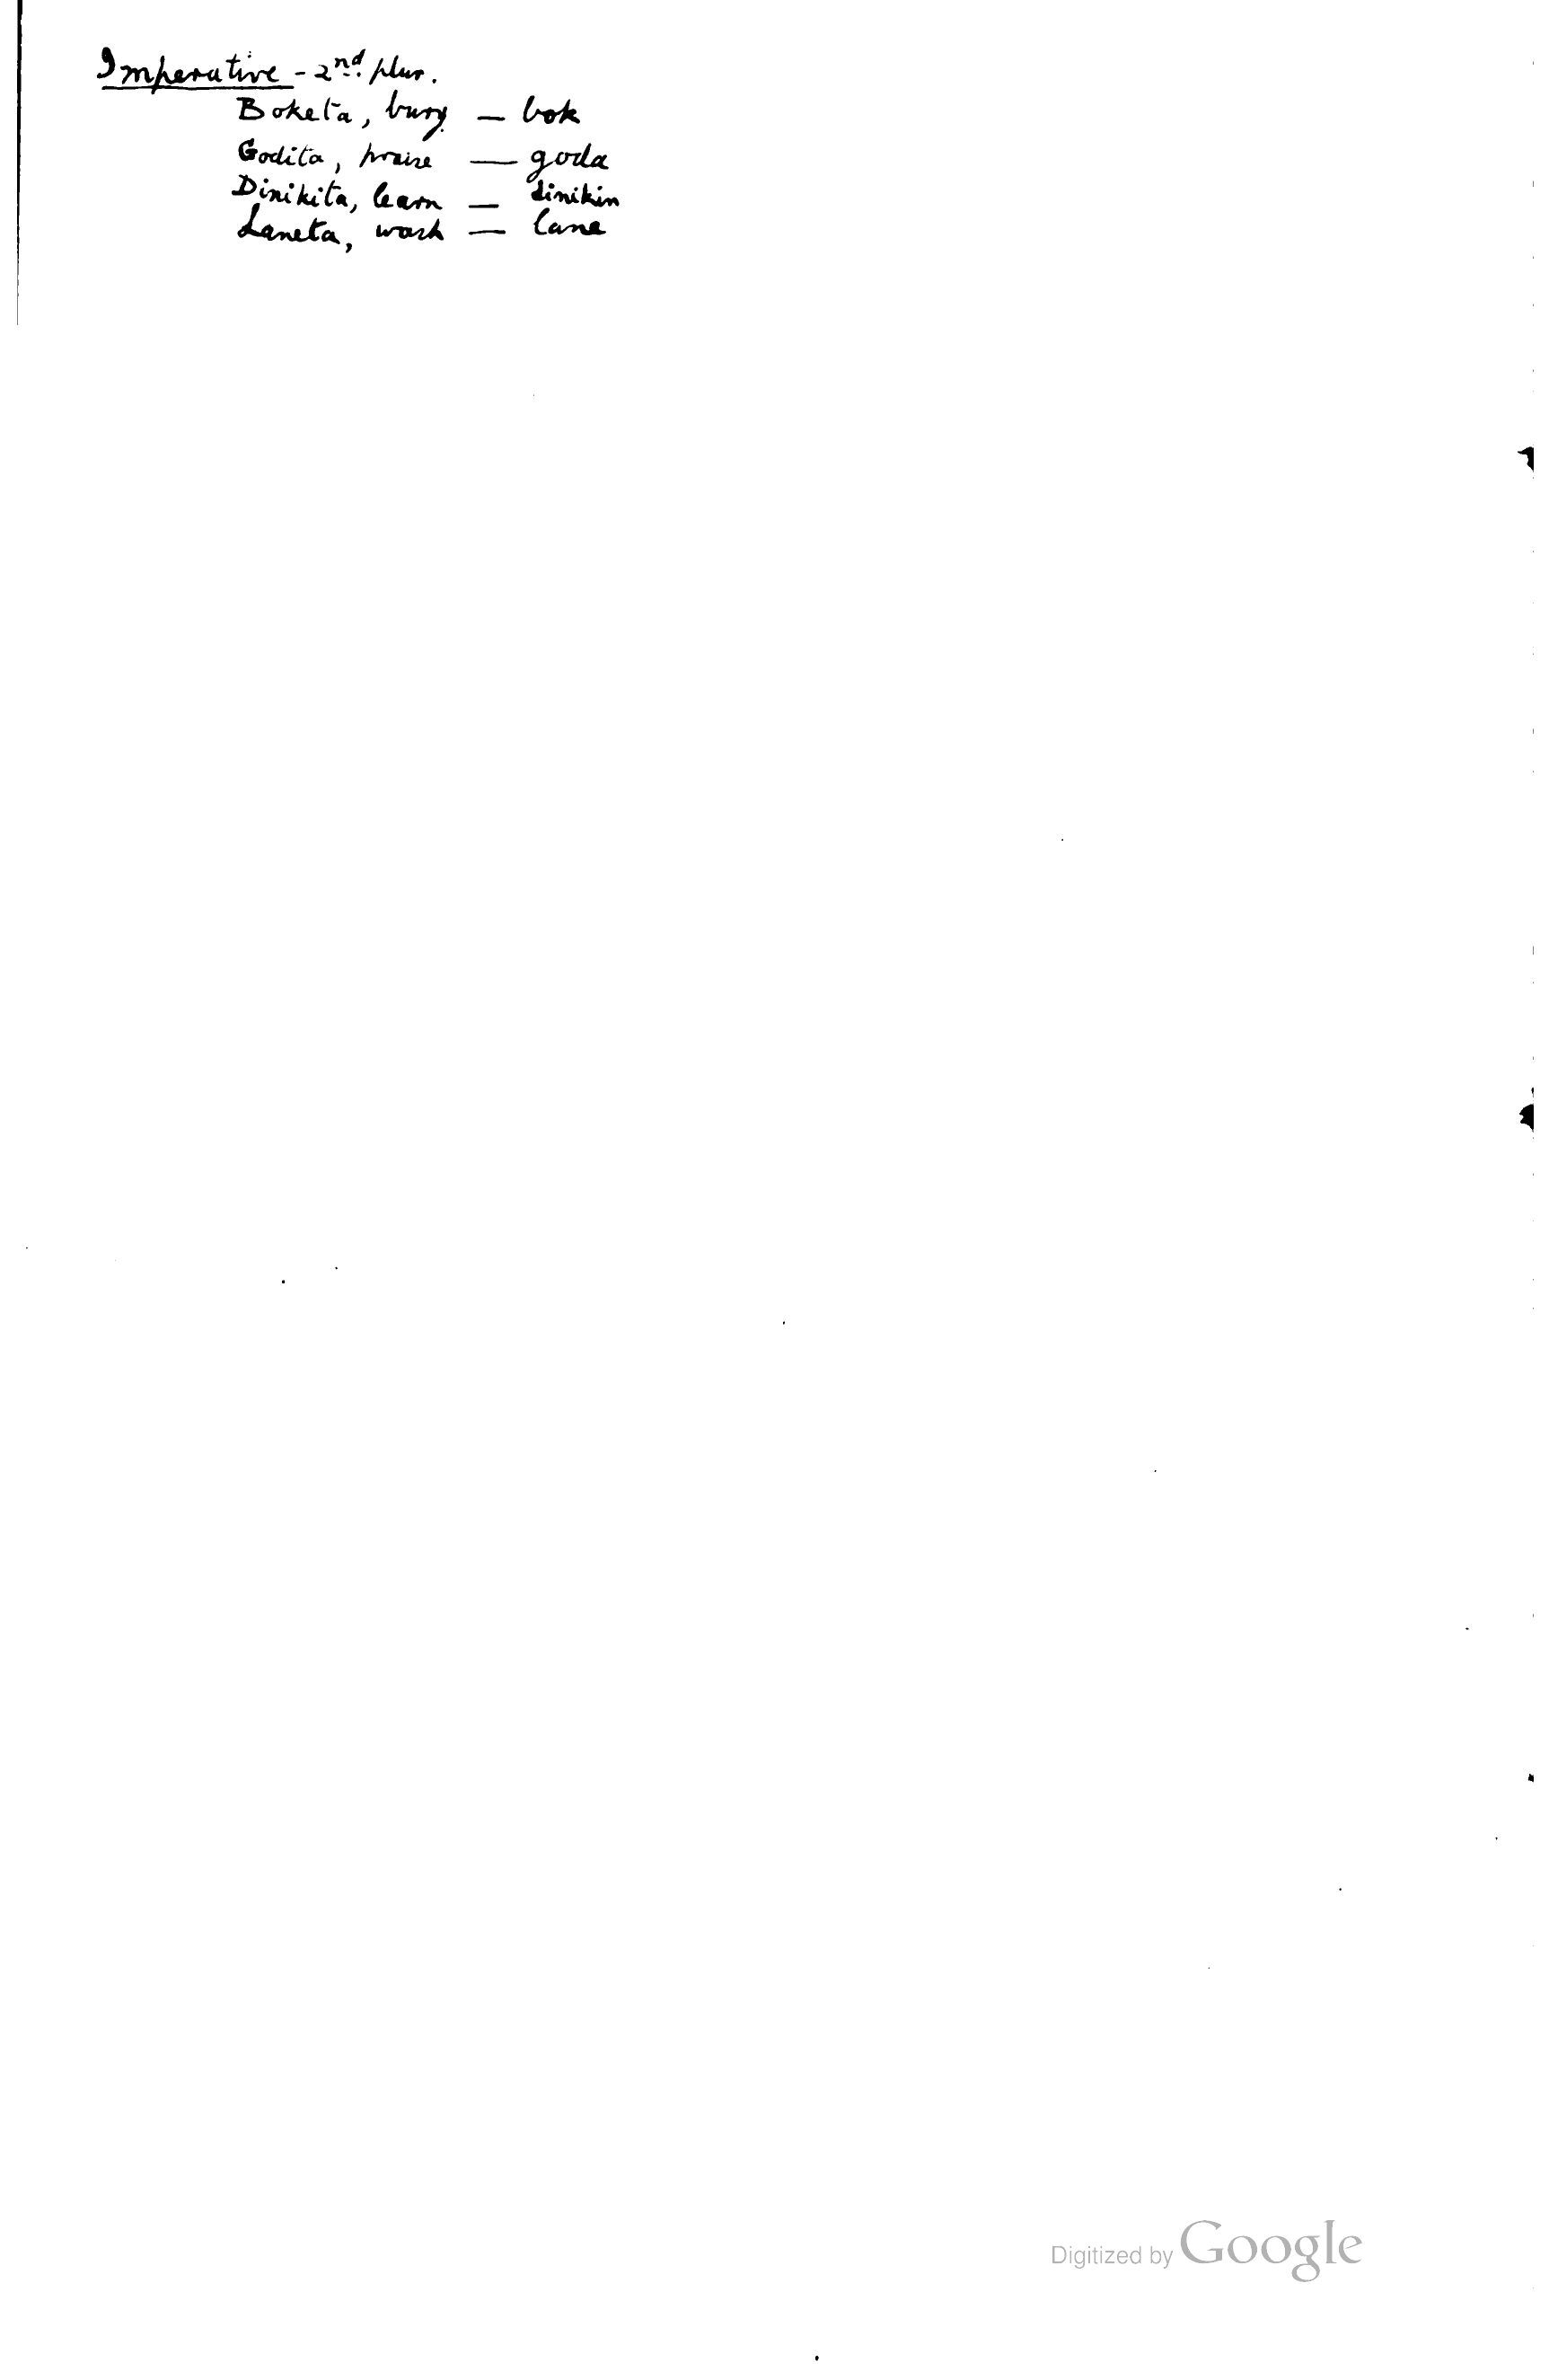 Imperative - 2nd. plur.
Boketa, bury. — bok
Godita, praise — goda
Dinikita, learn — dinikin
Laneta, wash — lane
Digitized by Google